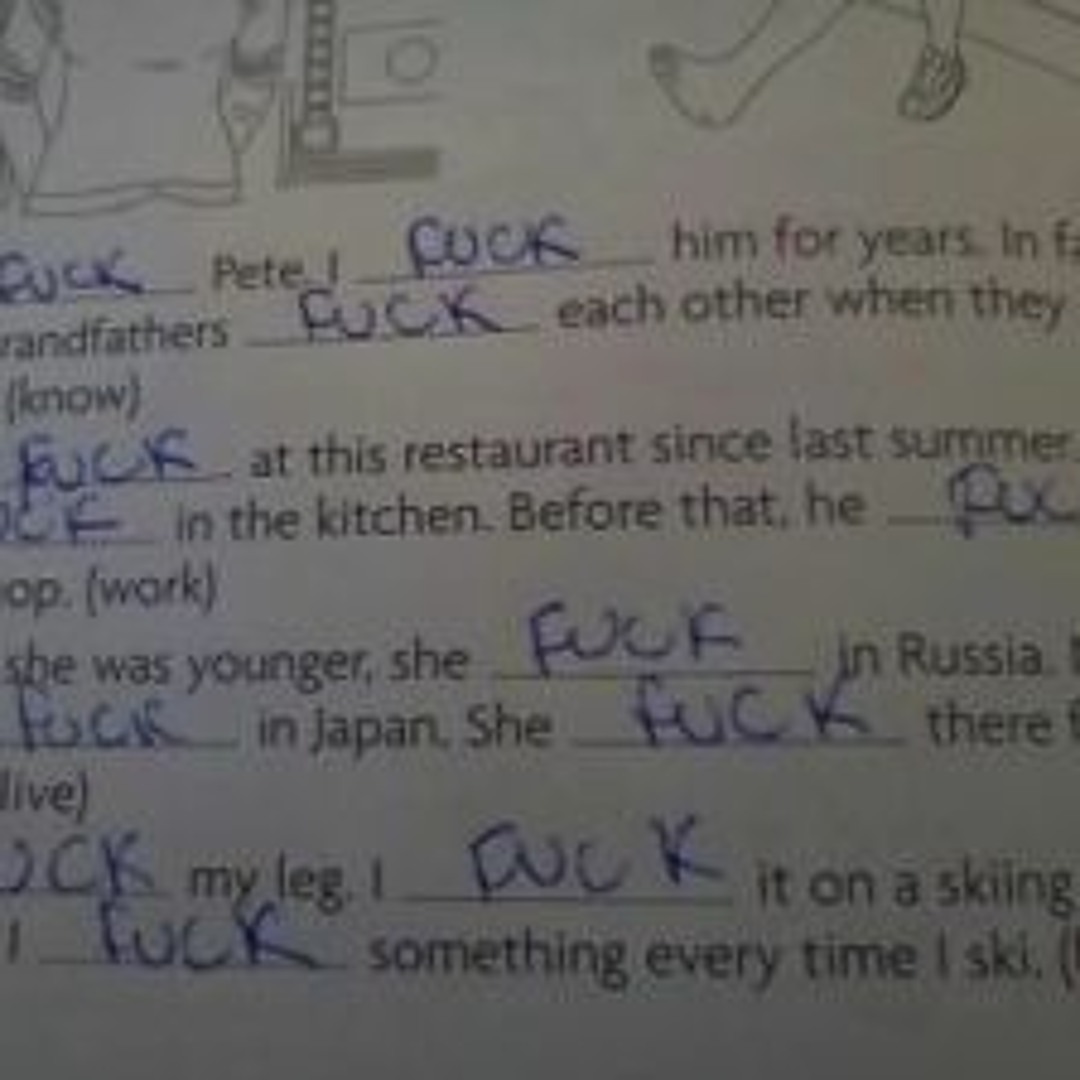 FUCK Pete. I FUCK him for years. In fa
randfathers FUCK each other when they
(know)
FUCK at this restaurant since last summer.
UCK in the kitchen. Before that, he FUC
op. (work)
she was younger, she FUCK in Russia.
FUCK in Japan. She FUCK there f
live)
UCK my leg. I FUCK it on a skiing
I FUCK something every time I ski. (